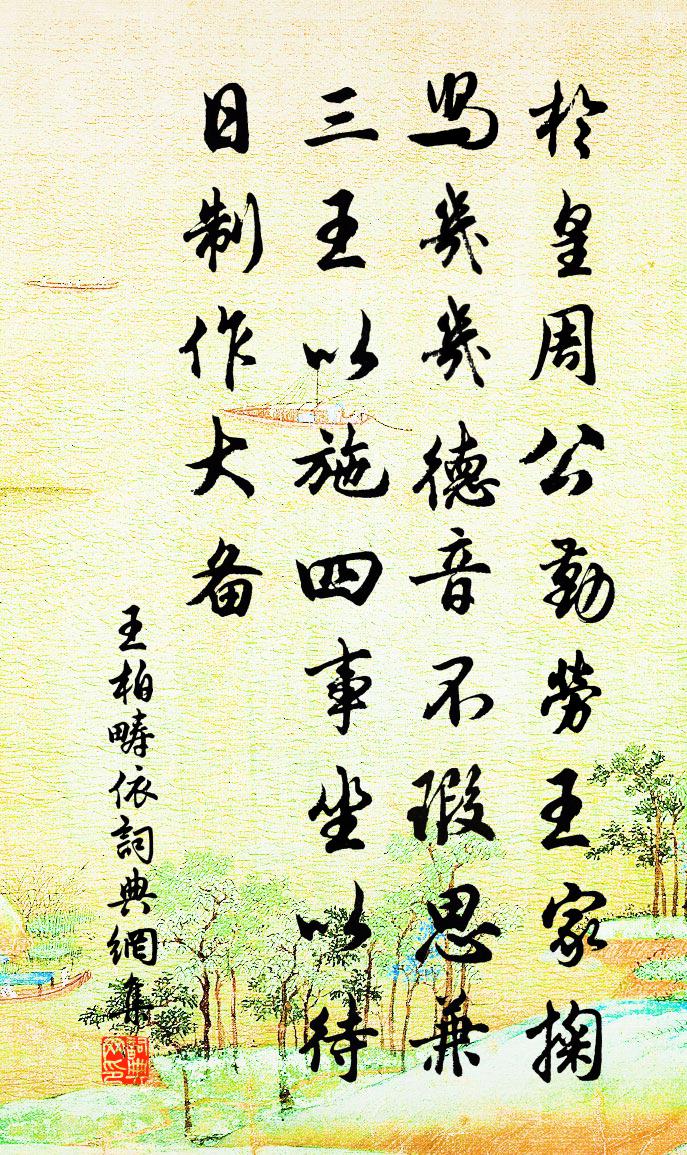 於皇周公勤勞王家掬
舄幾幾德音不瑕思兼
三王以施四事坐以待
日制作大备
王柏疇依詞典網集